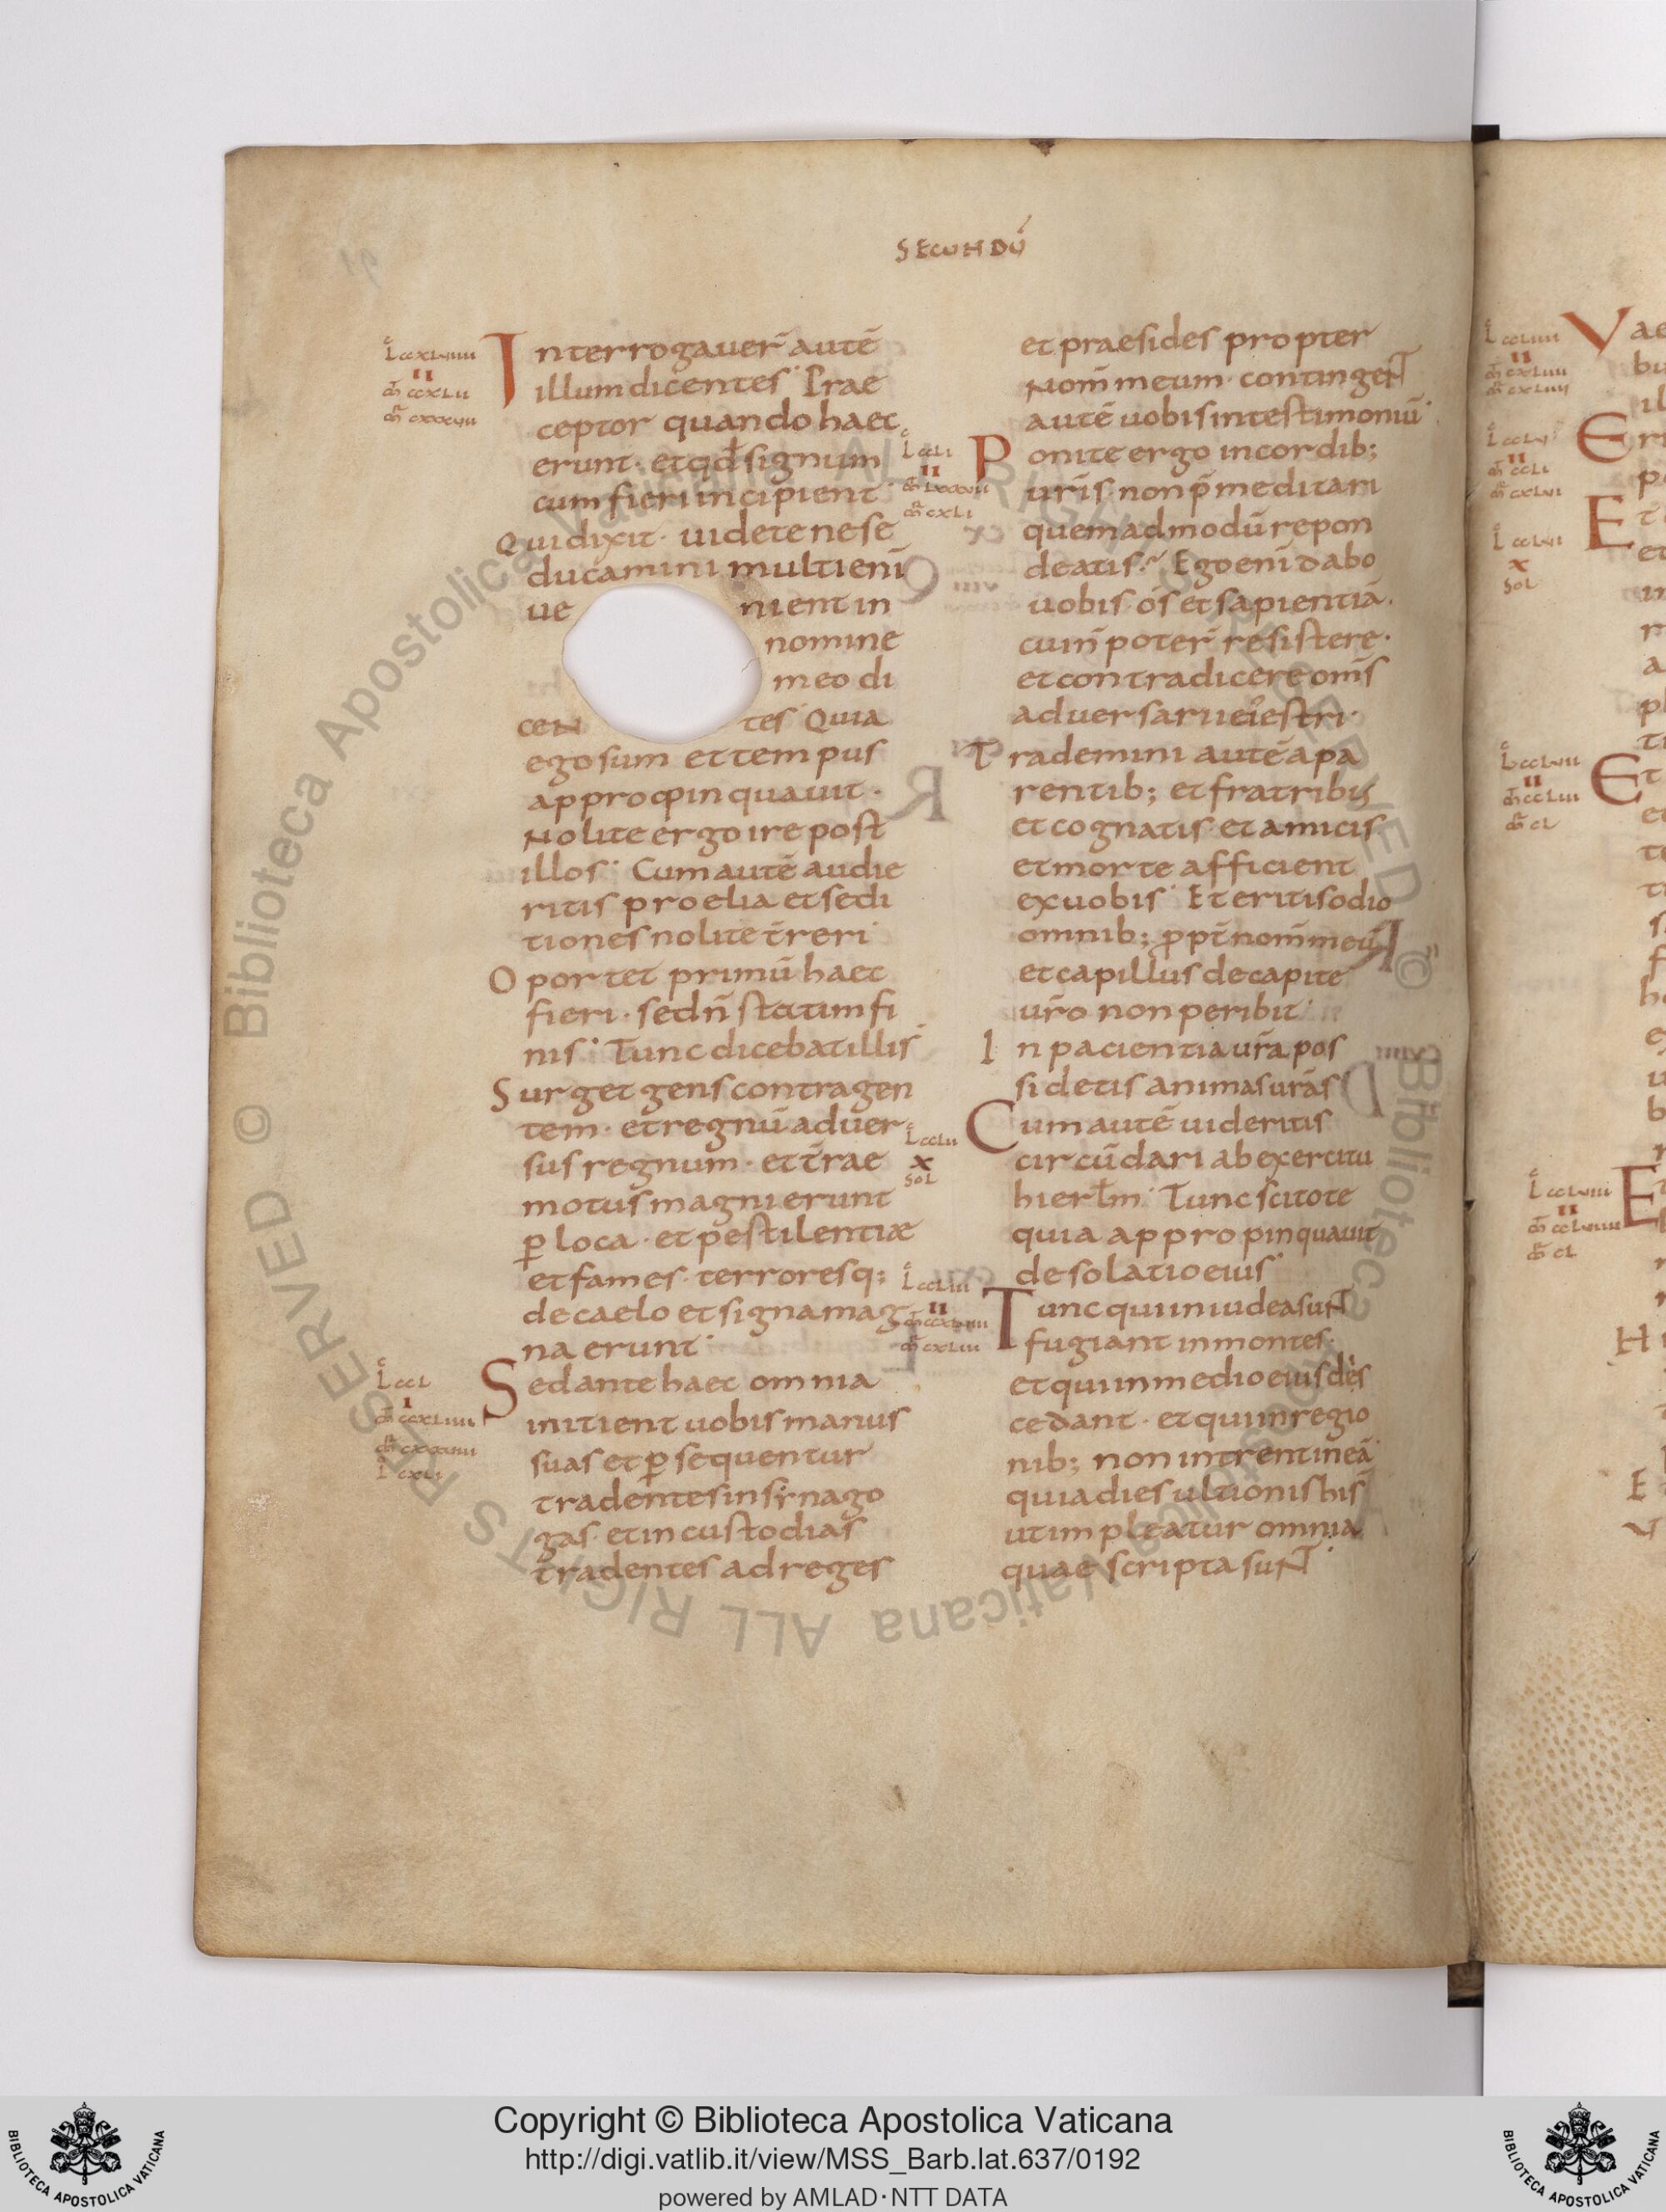 SECUNDŪ
L ccxlviiii
II
m̄ ccxlii
m̄r cxxxvii
Interrogauer̄ autē
illum dicentes Prae
ceptor quando haec
erunt· et qđ signum
cum fieri incipient
Qui dixit· uidete ne se
ducamini multi enī
ue nient in
nomine
meo di
ceN tes Quia
ego sum et tempus
appropinquauit·
Nolite ergo ire post
illos Cum autē audie
ritis proelia et sedi
tiones nolite t̄reri
Oportet primū haec
fieri· sed n̄ statim fi
nis Tunc dicebat illis
Surget gens contra gen
tem· et regnū aduer
sus regnum· et t̄rae
motus magni erunt
ꝑ loca· et pestilentiæ
et fames· terroresq;
de caelo et signa mag
na erunt
L ccl
I
m̄ ccxliiii
L cxli
Sed ante haec omnia
initient uobis manus
suas et ꝑsequentur
tradentes in synago
gas· et in custodias
tradentes ad reges
et praesides propter
Nom̄ meum· contingeNT
autē uobis in testimoniū
L ccli
II
m̄r cxli
Ponite ergo in cordib;
ur̄is· non p̄meditari
quemadmodū repon
deatis· Ego enī dabo
uobis os et sapientiā·
cui n̄ poter̄ resistere·
et contradicere om̄s
aduersarii uestri·
Trademini autē a pa
rentib; et fratribus
et cognatis· et amicis
et morte afficient
ex uobis Et eritis odio
omnib; ꝓpt̄ nom̄ meū
et capillus de capite
ur̄o non peribit
In pacientia ur̄a pos
sidetis animas ur̄as
L cclii
X
sol
Cum autē uideritis
circūdari ab exercitu
hierłm Tunc scitote
quia appropinquauit
desolatio eius
L ccliii
II
m̄r cxliii
Tunc qui in iudea suNT
fugiant in montes
et qui in medio eius dis
cedant· et qui in regio
nib; non intrent in eā
quia dies ultionis his
ut impleatur omnia
quae scripta suNT
L ccliiii
II
Vae
bu
il
II
Er
p
Et
et
X
sol
II
m̄r cl
Et
II
m̄r cl
E
H
E
Copyright © Biblioteca Apostolica Vaticana
http://digi.vatlib.it/view/MSS_Barb.lat.637/0192
powered by AMLAD·NTT DATA
BIBLIOTECA APOSTOLICA VATICANA
BIBLIOTECA APOSTOLICA VATICANA
© Biblioteca Apostolica Vaticana ALL RIGHTS RESERVED © Biblioteca Apostolica Vaticana ALL RIGHTS RESERVED